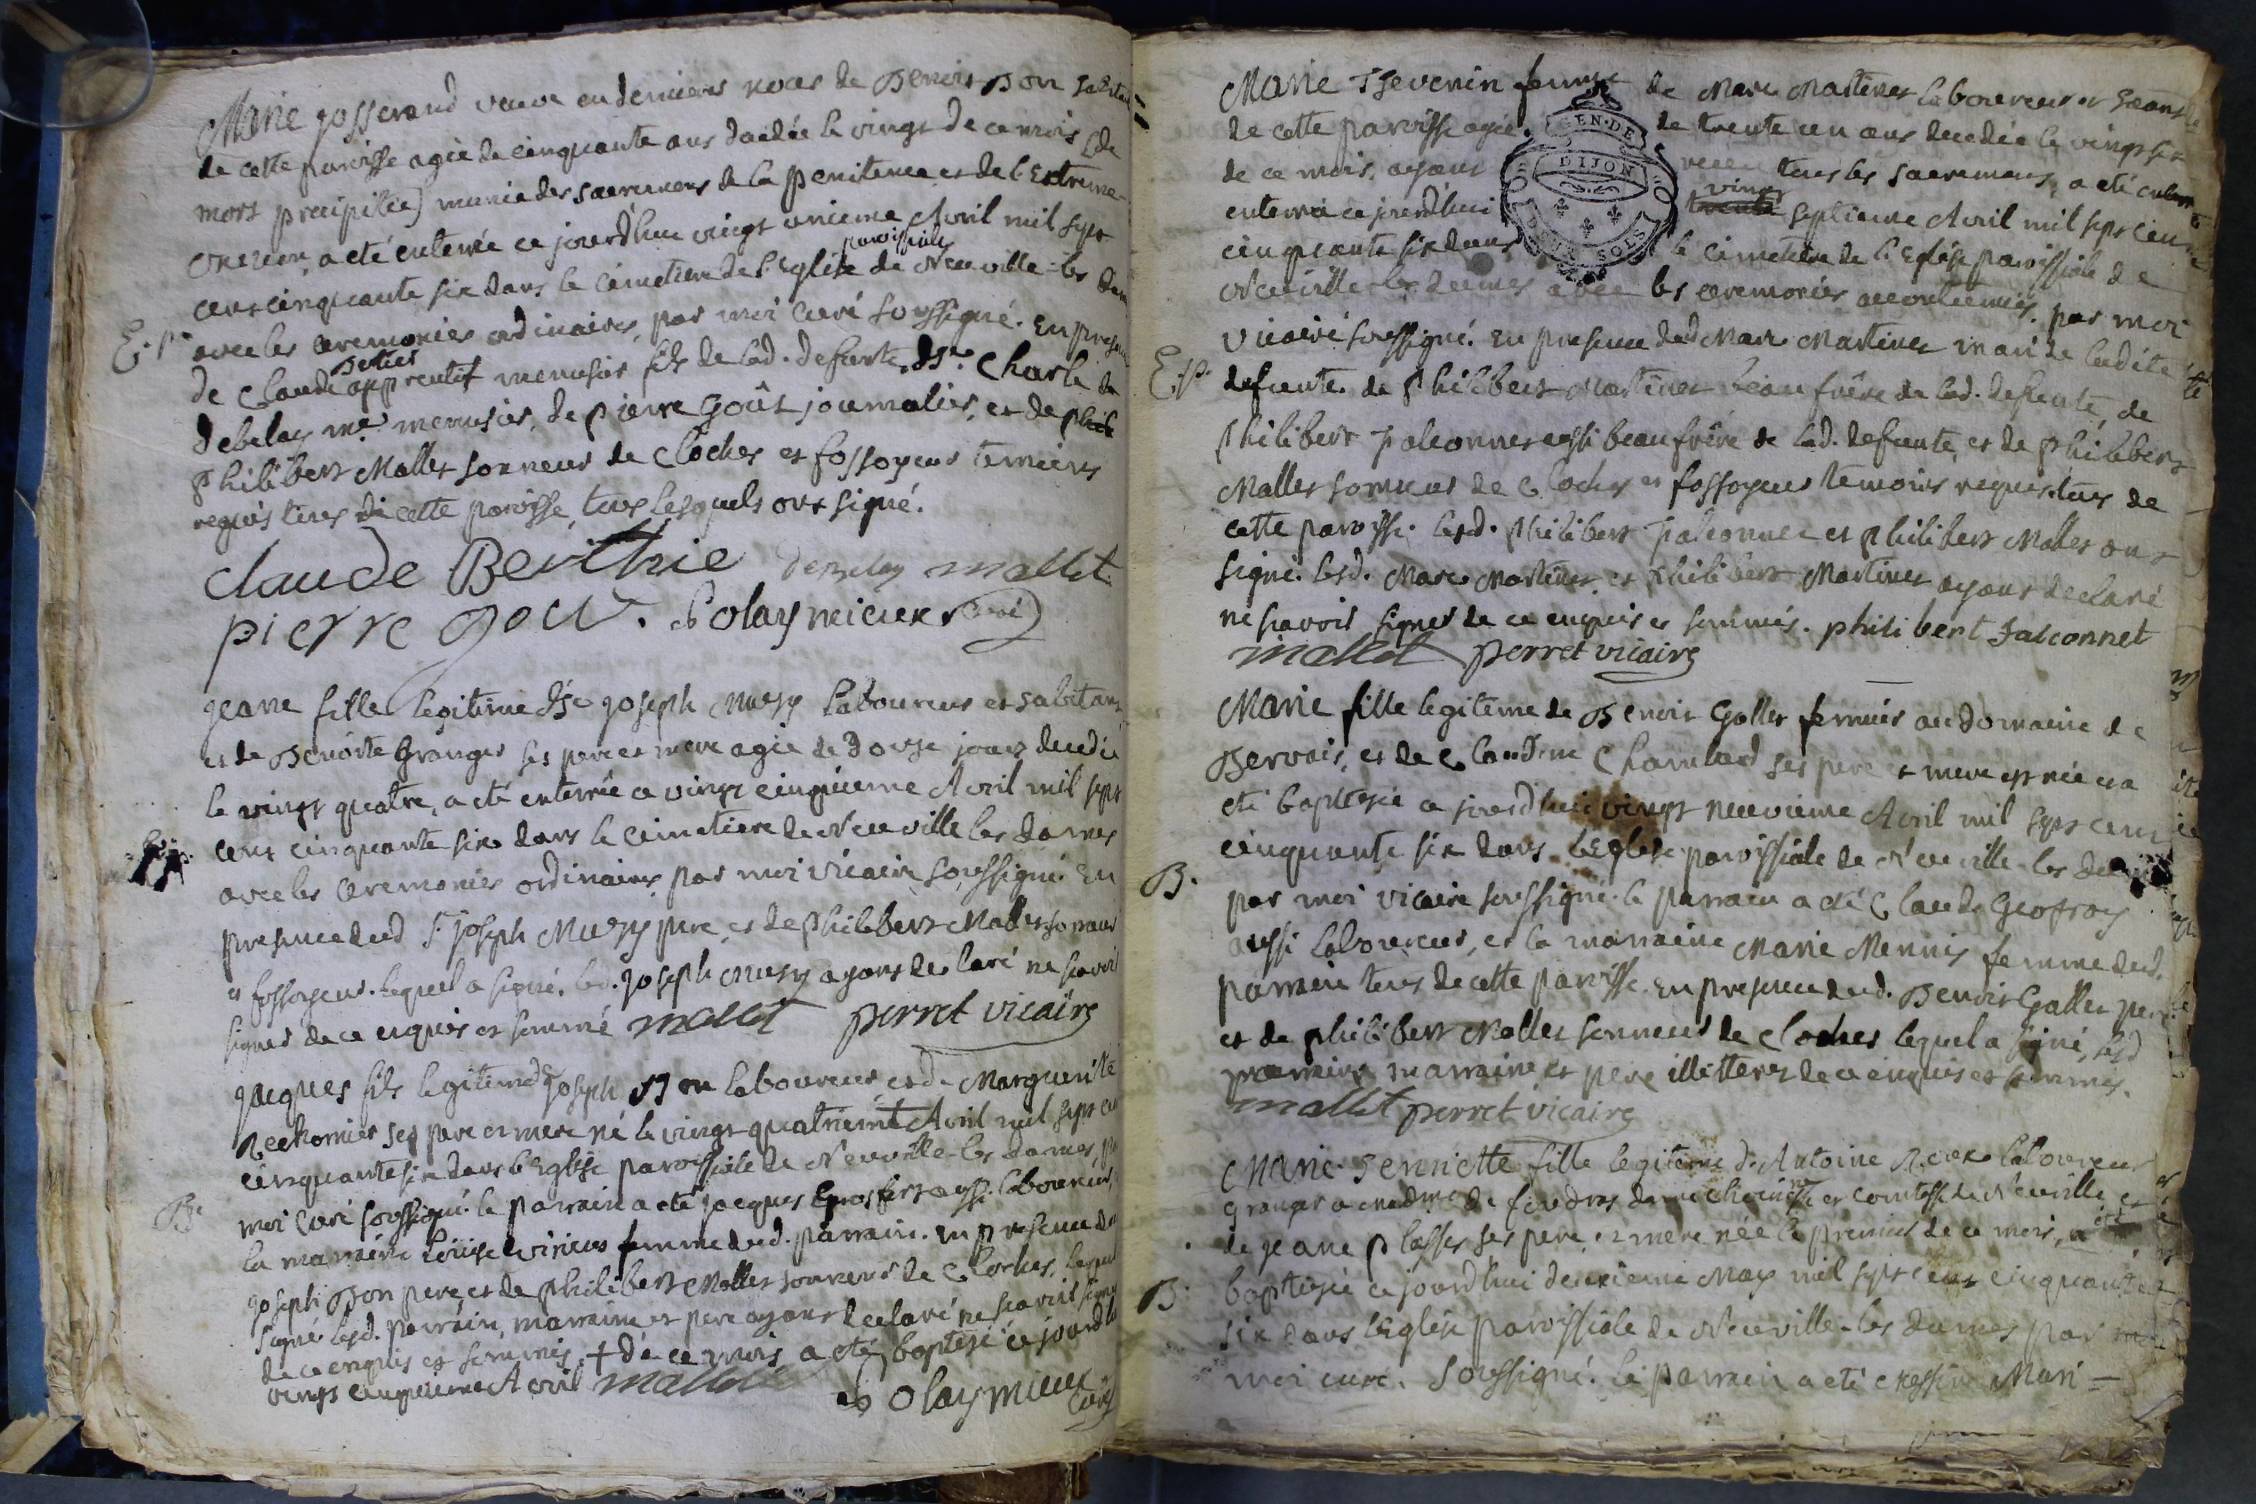 Marie gosserand veuve en dernieres noces de Benoit Bon
de cette paroisse agée de cinquante ans decédée le vingt de ce mois (de
mort precipitée) munie des sacremens de la penitence et de l'Extreme-
onction, a eté enterrée ce jourd'hui vingt unieme Avril mil sept
cent cinquante six dans le cimetiere de l'Eglise paroissiale de Neuville-les Dam
E.
avec les ceremonies ordinaires, par moi Curé soussigné. En presen
de Claude Bertier apprentif menusier fils de lad. defunte, de Sr. Charle de
debelay me. menusier, de pierre Goût journalier, et de
Philibert Mallet sonneur de Cloches et fossoyeur temoins
requis tous de cette paroisse, tous lesquels ont signé.
Claude Berthie debelay mallet
pierre gout. olaymieux curé
jeane fille legitime de Sr joseph Muzy laboureur et habitant
et de Benoite Granger ses pere et mere agée de douze jours decedée
le vingt quatre, a eté enterrée ce vingt cinquieme Avril mil sept
cent cinquante six dans le cimetiere de Neuville les dames
avec les ceremonies ordinaires par moi vicaire soussigné En
presence dud Sr. joseph Muzy pere, et de Philibert Mallet sonneur
et fossoyeur. lequel a signé. led. joseph Muzy ayant declaré ne scavoir
signer de ce enquis et sommé mallet perret vicaire
jacques fils legitime de joseph Bon laboureur et de Marguerite
ses pere et mere né le vingt quatrieme Avril mil sept cen
cinquante six dans l'Eglise paroissiale de Neuville-les dames, pa
B.
moi Curé soussigné. le parrain a eté jacques aussi laboureur,
la marraine Loüise femme dud. parrain. en presence de
joseph Bon pere, et de philibert Mallet sonneur de Cloches, lequel
signé lesd. parrain, marraine et pere ayant declaré ne scavoir signer
de ce enquis et sommés. + de ce mois a eté baptisé ce jourd'h
vingt cinquieme Avril mallet olaymieux curé
Marie Thevenin femme de Marc Martinet laboureur et
de cette paroisse agée de trente un ans decedée le vingt six
de ce mois, ayant receu tous les sacremens, a eté
enterrée ce jourd'hui vingt septieme Avril mil sept cent
cinquante six dans le cimetiere de l'Eglise paroissiale de
Neuville-les dames avec les ceremonies accoutumées. par moi
vicaire soussigné. En presence dud Marc Martinet mari de ladite
E.
defunte, de Philibert Martinet beau frère de lad. defunte, de
Philibert Falconnet aussi beau frêre de lad. defunte, et de Philibert
Mallet sonneur de Cloches et fossoyeur temoins requis tous de
cette paroisse. lesd. Philibert Falconnet et philibert Mallet ont
signé. lesd. Marc Martinet, et Philibert Martinet ayant declaré
ne scavoir signer de ce enquis et sommés. philibert Falconnet
mallet perret vicaire
Marie fille legitime de Benoit Gallet fermier au domaine de
Bervais, et de Claudine Chambard ses pere et mere est née et a
eté baptisée ce jourd'hui vingt neuvieme Avril mil sept cent
cinquante six dans l'Eglise paroissiale de Neuville-les dames
B.
par moi vicaire soussigné. le parrain a eté Claude Geofray
aussi laboureur, et la marraine Marie femme dud.
parrain tous de cette paroisse. En presence dud. Benoit Gallet pere
et de philibert Mallet sonneur de Cloches lequel a signé, lesd
parrain, marraine et pere illitteres de ce enquis et sommés.
mallet perret vicaire
Marie-henriette fille legitime d'Antoine laboureur
granger a madme de foudras dame chanoinesse et comtesse de Neuville, et
de jeane plasse ses pere et mere née le premier de ce mois, a eté
B.
baptisée ce jourd'hui deuxieme May mil sept cent cinquante
six dans l'Eglise paroissiale de Neuville-les dames par
moi curé. soussigné. le parrain a eté Messire Mari=
GEN. DE
DIJON
DEUX SOLS